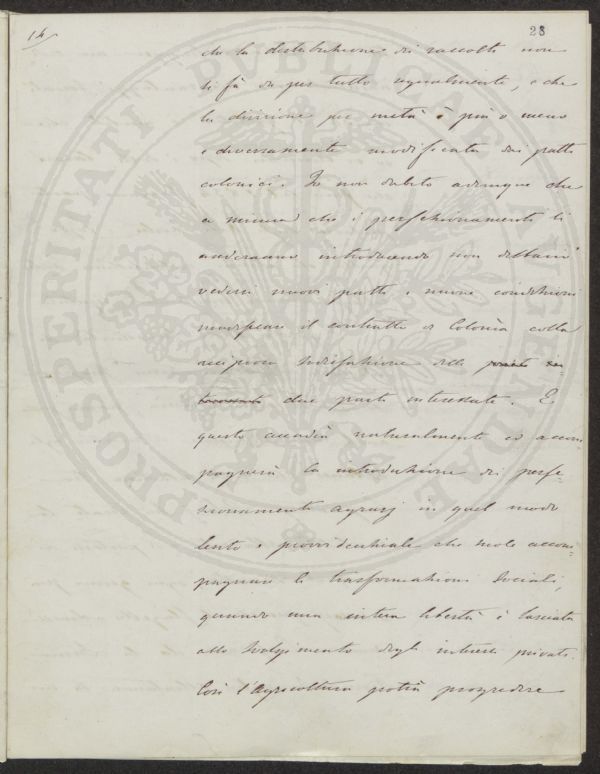 14
28
che la distribuzione dei raccolti non
si fà da per tutto egualmente, e che
la divisione per metà è più o meno
e diversamente modificata dai patti
colonici. Io non dubito adunque che
a misura che i perfezionamenti si
anderanno introducendo non
vedersi nuovi patti e nuove condizioni
modificare il contratto di Colonìa colla
reciproca sodisfazione delle
due parti interessate. E
questo accadrà naturalmente ed accom-
pagnerà la introduzione dei perfe-
zionamenti agrarj in quel modo
lento e provvidenziale che suole accom-
pagnare le trasformazioni sociali,
quando una intera libertà è lasciata
allo svolgimento degli interessi privati.
Così l'Agricoltura potrà progredire
PROSPERITATI PUBLICAE AUGENDAE